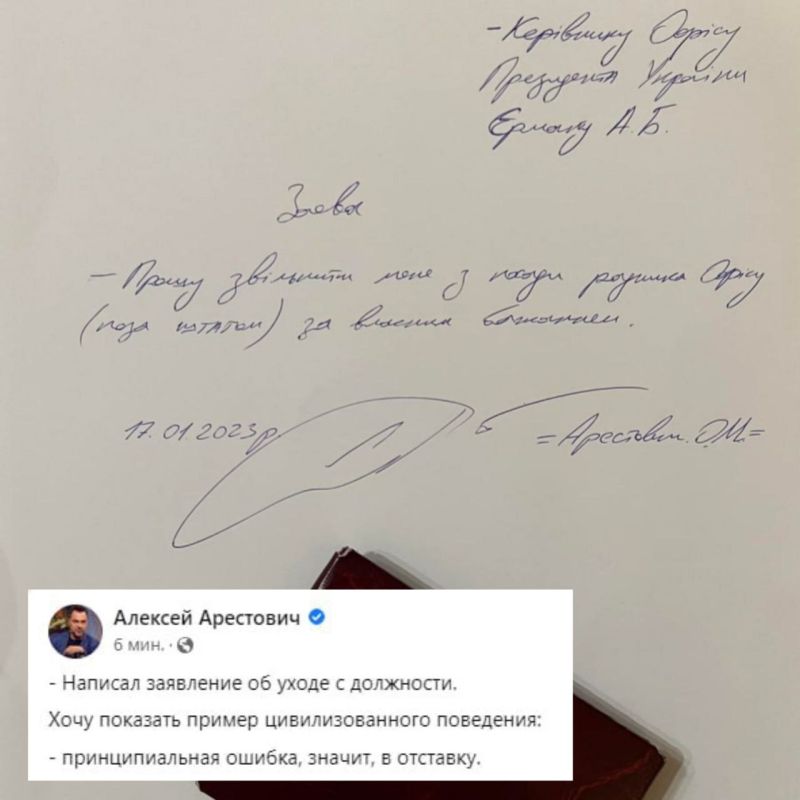 - Керівнику Офісу
Президента України
Єрмаку А.Б.
Заява
- Прошу звільнити мене з посади радника Офісу
(поза штатом) за власним бажанням.
17.01.2023р
= Арестович О.М. =
Алексей Арестович
6 мин. ·
- Написал заявление об уходе с должности.
Хочу показать пример цивилизованного поведения:
- принципиальная ошибка, значит, в отставку.